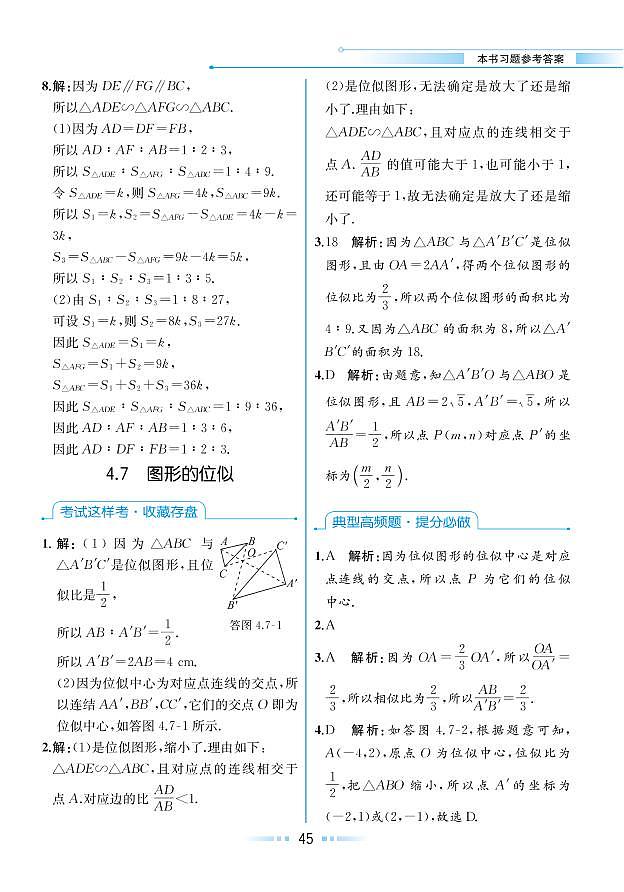 本书习题参考答案
8.解:因为 DE∥FG∥BC,
所以△ADE∽△AFG∽△ABC.
(1)因为 AD=DF=FB,
所以 AD∶AF∶AB=1∶2∶3,
所以 S△ADE∶S△AFG∶S△ABC=1∶4∶9.
令 S△ADE=k,则 S△AFG=4k,S△ABC=9k.
所以 S₁=k,S₂=S△AFG-S△ADE=4k-k=
3k,
S₃=S△ABC-S△AFG=9k-4k=5k,
所以 S₁∶S₂∶S₃=1∶3∶5.
(2)由 S₁∶S₂∶S₃=1∶8∶27,
可设 S₁=k,则 S₂=8k,S₃=27k.
因此 S△ADE=S₁=k,
S△AFG=S₁+S₂=9k,
S△ABC=S₁+S₂+S₃=36k,
因此 S△ADE∶S△AFG∶S△ABC=1∶9∶36,
因此 AD∶AF∶AB=1∶3∶6,
因此 AD∶DF∶FB=1∶2∶3.
4.7 图形的位似
考试这样考·收藏存盘
1.解:(1)因为△ABC 与
△A′B′C′是位似图形,且位
似比是1/2,
所以 AB∶A′B′=1/2.
所以 A′B′=2AB=4 cm.
A B C′
O
C
A′
B′
答图 4.7-1
(2)因为位似中心为对应点连线的交点,所
以连结 AA′,BB′,CC′,它们的交点 O 即为
位似中心,如答图 4.7-1 所示.
2.解:(1)是位似图形,缩小了.理由如下:
△ADE∽△ABC,且对应点的连线相交于
点 A.对应边的比 AD/AB<1.
(2)是位似图形,无法确定是放大了还是缩
小了.理由如下:
△ADE∽△ABC,且对应点的连线相交于
点 A. AD/AB 的值可能大于 1,也可能小于 1,
还可能等于 1,故无法确定是放大了还是缩
小了.
3.18 解析:因为△ABC 与△A′B′C′是位似
图形,且由 OA=2AA′,得两个位似图形的
位似比为2/3,所以两个位似图形的面积比为
4∶9.又因为△ABC 的面积为 8,所以△A′
B′C′的面积为 18.
4.D 解析:由题意,知△A′B′O 与△ABO 是
位似图形,且 AB=2√5,A′B′=√5,所以
A′B′/AB=1/2,所以点 P(m,n)对应点 P′的坐
标为(m/2,n/2).
典型高频题·提分必做
1.A 解析:因为位似图形的位似中心是对应
点连线的交点,所以点 P 为它们的位似
中心.
2.A
3.A 解析:因为 OA=2/3 OA′,所以 OA/OA′=
2/3,所以相似比为2/3,所以 AB/A′B′=2/3.
4.D 解析:如答图 4.7-2,根据题意可知,
A(-4,2),原点 O 为位似中心,位似比为
1/2,把△ABO 缩小,所以点 A′的坐标为
(-2,1)或(2,-1),故选 D.
45